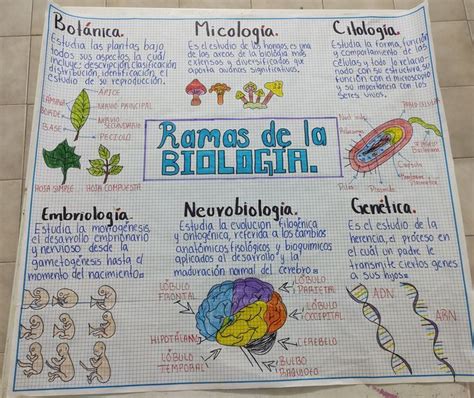 Botánica.
Estudia las plantas bajo
todos sus aspectos, la cuál
incluye: descripción, clasificación
distribución, identificación, el
estudio de su reproducción.
ÁPICE
LÁMINA
NERVIO PRINCIPAL
BORDE
NERVIO
SECUNDARIO
BASE
PECIOLO
HOJA SIMPLE
HOJA COMPUESTA
Micología.
Es el estudio de los hongos, es una
de las áreas de la biología más
extensos y diversificados que
aporta avances significativos.
Citología.
Estudia la forma, función
y comportamiento de las
células y todo lo relacio-
nado con su estructura, su
función con el microscopio
y su importancia con los
seres vivos.
Capsula
Membrana
Plasmatica
Plasmido
Pilus
Ramas de la
BIOLOGÍA.
Embriología.
Estudia la morfogénesis,
el desarrollo embrionario
y nervioso desde la
gametogénesis hasta el
momento del nacimiento
Neurobiología.
Estudia la evolución filogénica
y ontogénica, referida a los cambios
anatómicos, fisiológicos y bioquímicos
aplicados al desarrollo y la
maduración normal del cerebro
LÓBULO
FRONTAL
LÓBULO
PARIETAL
LÓBULO
OCCIPITAL
HIPOTÁLAMO
CEREBELO
LÓBULO
TEMPORAL
BULBO
RAQUIDEO
Genética.
Es el estudio de la
herencia, el proceso en
el cuál un padre le
transmite ciertos genes
a sus hijos
ADN
ARN